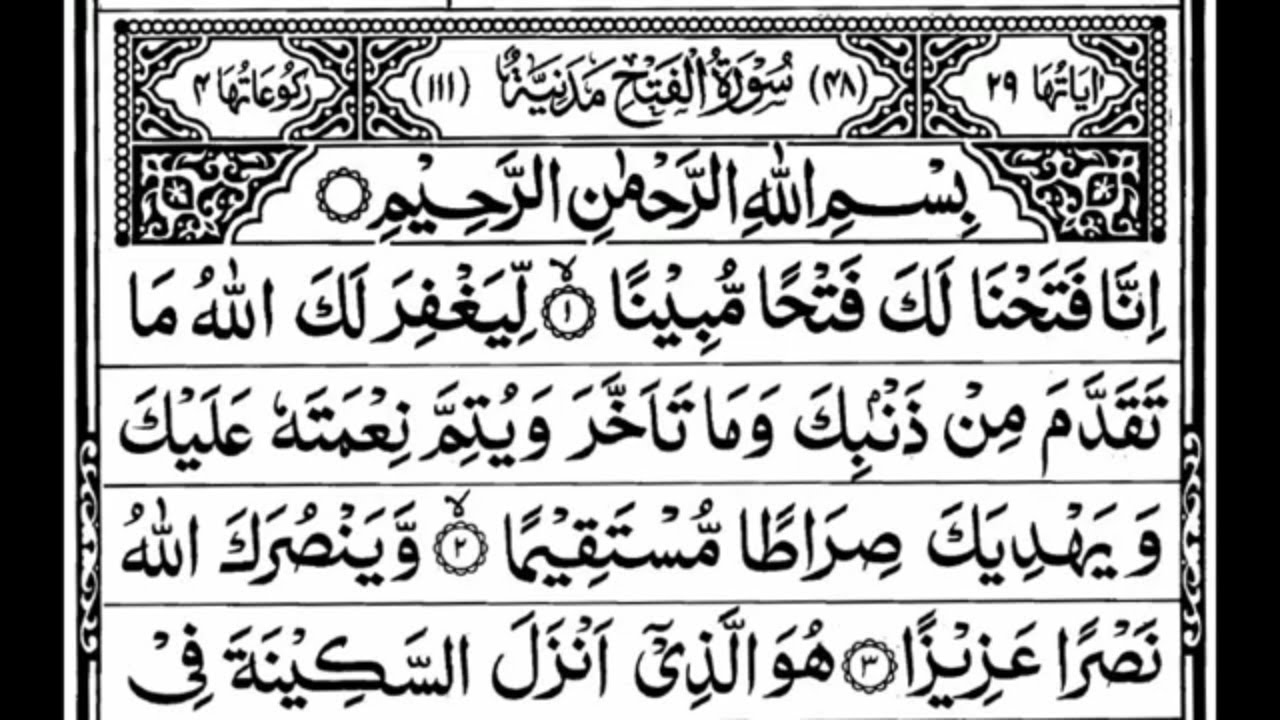 اٰیَاتُهَا ٢٩ (٤٨) سُوْرَةُ الْفَتْحِ مَدَنِيَّةٌ (١١١) رُكُوْعَاتُهَا ٤
بِسْمِ اللّٰهِ الرَّحْمٰنِ الرَّحِيْمِ
اِنَّا فَتَحْنَا لَكَ فَتْحًا مُّبِيْنًا ۙ‏﴿١﴾ لِّيَغْفِرَ لَكَ اللّٰهُ مَا
تَقَدَّمَ مِنْ ذَنْۢبِكَ وَمَا تَاَخَّرَ وَيُتِمَّ نِعْمَتَهٗ عَلَيْكَ
وَيَهْدِيَكَ صِرَاطًا مُّسْتَقِيْمًا ۙ‏﴿٢﴾ وَّيَنْصُرَكَ اللّٰهُ
نَصْرًا عَزِيْزًا ﴿٣﴾ هُوَ الَّذِيْۤ اَنْزَلَ السَّكِيْنَةَ فِيْ